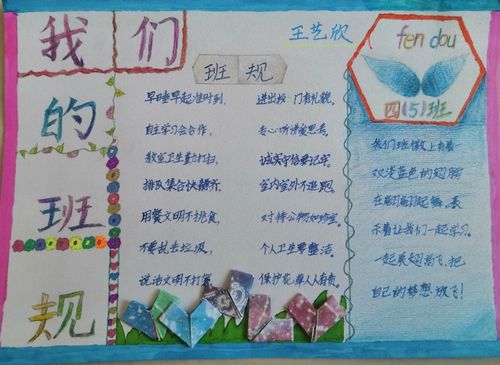 我们的班规
王艺欣
班规
早睡早起准时到,
进出校门有礼貌。
自主学习会合作,
专心听讲爱思考。
教室卫生勤打扫,
诚实守信要记牢。
排队集合快静齐,
室内室外不追跑。
用餐文明不挑食,
对待公物如珍宝。
不要乱丢垃圾,
个人卫生要整洁。
说话文明不打骂
保护花草人人有责。
fen dou
四(5)班
我们班徽上有着
双淡蓝色的翅膀
在翩翩起舞。表
示着让我们一起学习。
一起展翅高飞,把
自己的梦想放飞!